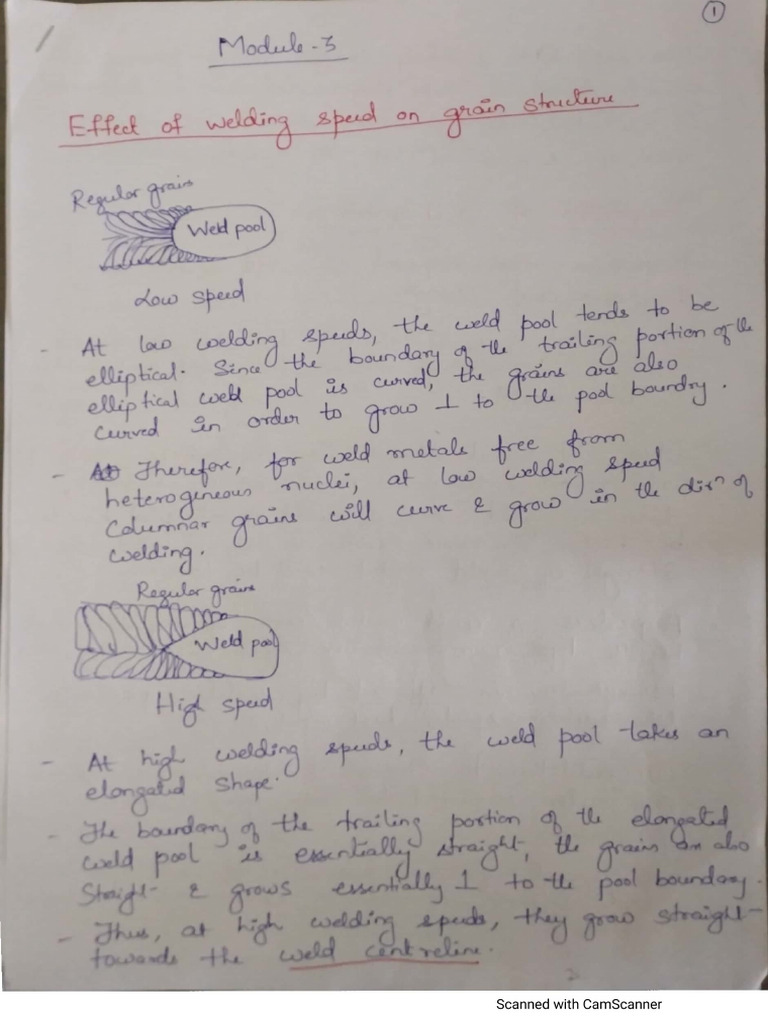 1
Module-3
Effect of welding speed on grain structure
Regular grains
Weld pool
Low speed
- At low welding speeds, the weld pool tends to be
elliptical. Since the boundary of the trailing portion of the
elliptical weld pool is curved, the grains are also
curved in order to grow ⊥ to the pool boundry.
- At Therefore, for weld metals free from
heterogeneous nuclei, at low welding speed
Columnar grains will curve & grow in the dirⁿ of
welding.
Regular grains
Weld pool
High speed
- At high welding speeds, the weld pool takes an
elongated shape.
- The boundary of the trailing portion of the elongated
weld pool is essentially straight, the grains are also
Straight & grows essentially ⊥ to the pool boundary.
- Thus, at high welding speeds, they grow straight
towards the weld centreline.
Scanned with CamScanner